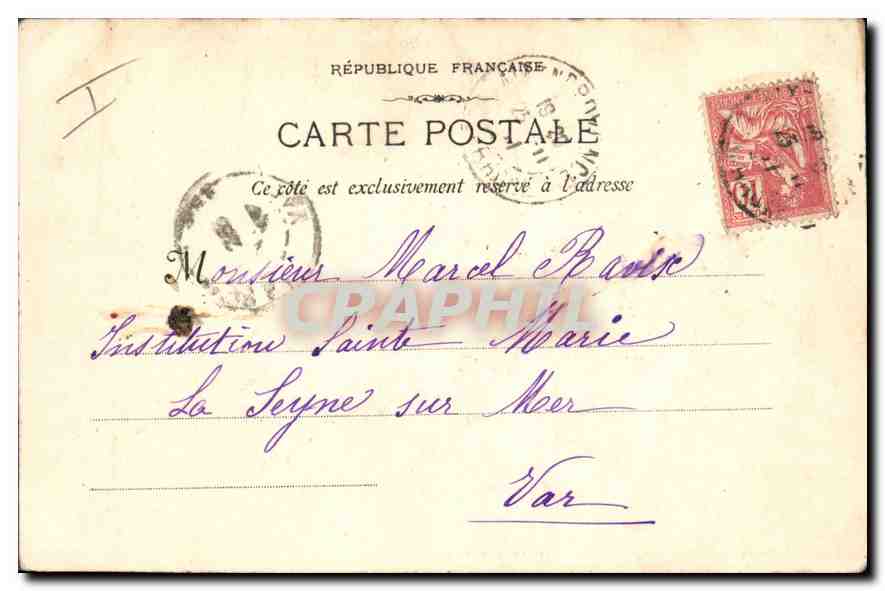 I
RÉPUBLIQUE FRANÇAISE
CARTE POSTALE
Ce côté est exclusivement réservé à l'adresse
Monsieur Marcel Ravix
CPAPHIL
Institution Sainte Marie
La Seyne sur Mer
Var